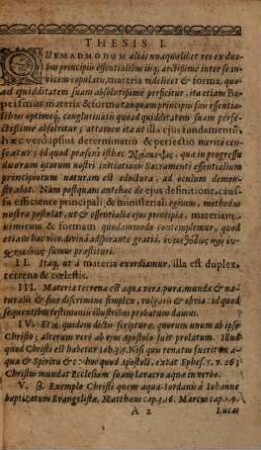 THESIS I.
QUEMADMODUM alias unaquælibet res ex duo-
bus principiis essentialibus inq; arctissimo inter se in-
vicem copulatis, materia videlicet & forma quo-
ad quidditatem suam absolutissime perficitur, ita etiam Ba-
ptismus materia & forma tanquam principiis suis essentia-
libus optime q; conglutinatis quoad quidditatem suam perfe-
ctissime absolvitur; attamen ita ut illa ejus fundamentum,
hæc verò ipsius determinatio & perfectio meritò cen-
seatur; id quod præsens isthæc quæ in progressu
duorum aliorum nostri initiationis Sacramenti essentialium
principiorum naturam est edoctura, ad oculum demon-
strabit. Nam postquam antehac de ejus definitione, caus-
sa efficiente principali & ministeriali, egimus, methodus
nostra postulat, ut & essentialia ejus principia, materiam
nimirum & formam quodammodo contemplemur, quod
etiam hac vice, divinâ adspirante gratiâ,
sumus præstituri.
II. Itaq, ut à materia exordiamur, illa est duplex,
terrena & cœlestis.
III. Materia terrena est aqua vera, pura, munda & na-
turalis & sine discrimine simplex, vulgaris & obvia: id quod
sequentibus testimoniis illustribus probatum damus.
IV. Et α. quidem dictis scripturæ, quorum unum ab ipso
Christo; alterum verò ab ejus Apostolo fuit prolatum. Illud
quod Christi est habetur Joh. 3. Nisi quis renatus fuerit ex a-
qua & Spiritu &c. hoc quod Apostoli, extat Ephes. 5. v. 26.
Christus mundat Ecclesiam suam lavacro aquæ in verbo.
V. β. Exemplo Christi quem aqua Jordanis à Johanne
baptizatum Evangelistæ, Matthæus cap. 3. 16. Marcus cap. 1. 9.
A 2 Lucas